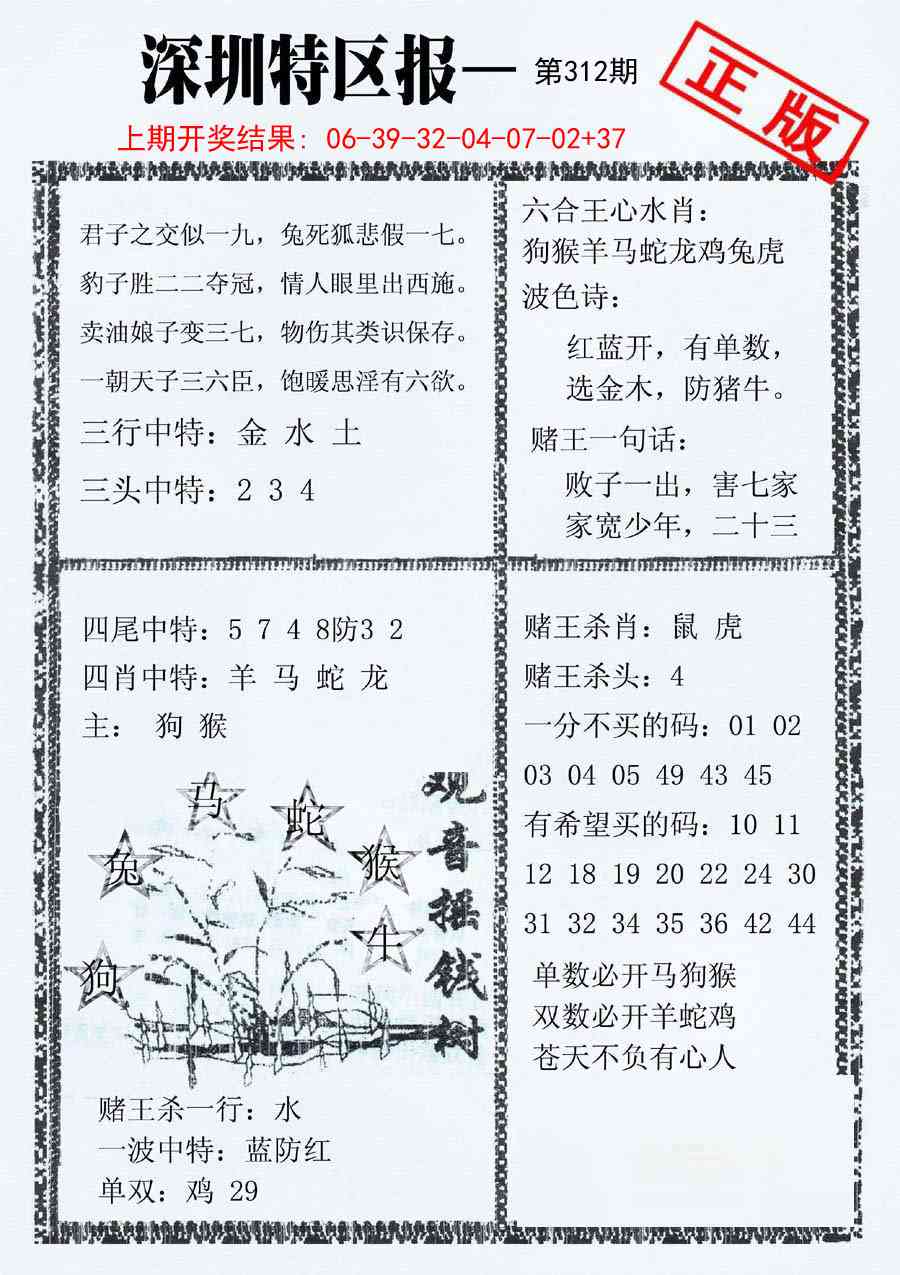 深圳特区报一 第312期
正版
上期开奖结果：06-39-32-04-07-02+37
君子之交似一九，兔死狐悲假一七。
豹子胜二二夺冠，情人眼里出西施。
卖油娘子变三七，物伤其类识保存。
一朝天子三六臣，饱暖思淫有六欲。
三行中特：金 水 土
三头中特：2 3 4
六合王心水肖：
狗猴羊马蛇龙鸡兔虎
波色诗：
红蓝开，有单数，
选金木，防猪牛。
赌王一句话：
败子一出，害七家
家宽少年，二十三
四尾中特：5 7 4 8防3 2
四肖中特：羊 马 蛇 龙
主： 狗 猴
马
蛇
兔
猴
牛
狗
观音摇钱树
赌王杀一行：水
一波中特：蓝防红
单双：鸡 29
赌王杀肖：鼠 虎
赌王杀头：4
一分不买的码：01 02
03 04 05 49 43 45
有希望买的码：10 11
12 18 19 20 22 24 30
31 32 34 35 36 42 44
单数必开马狗猴
双数必开羊蛇鸡
苍天不负有心人